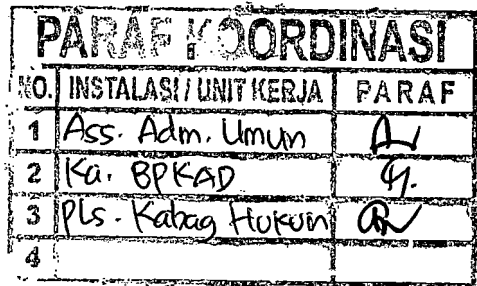 PARAF KOORDINASI
NO. INSTALASI / UNIT KERJA PARAF
1 Ass. Adm. Umun
2 Ka. BPKAD
3 Pls. Kabag Hukum
4